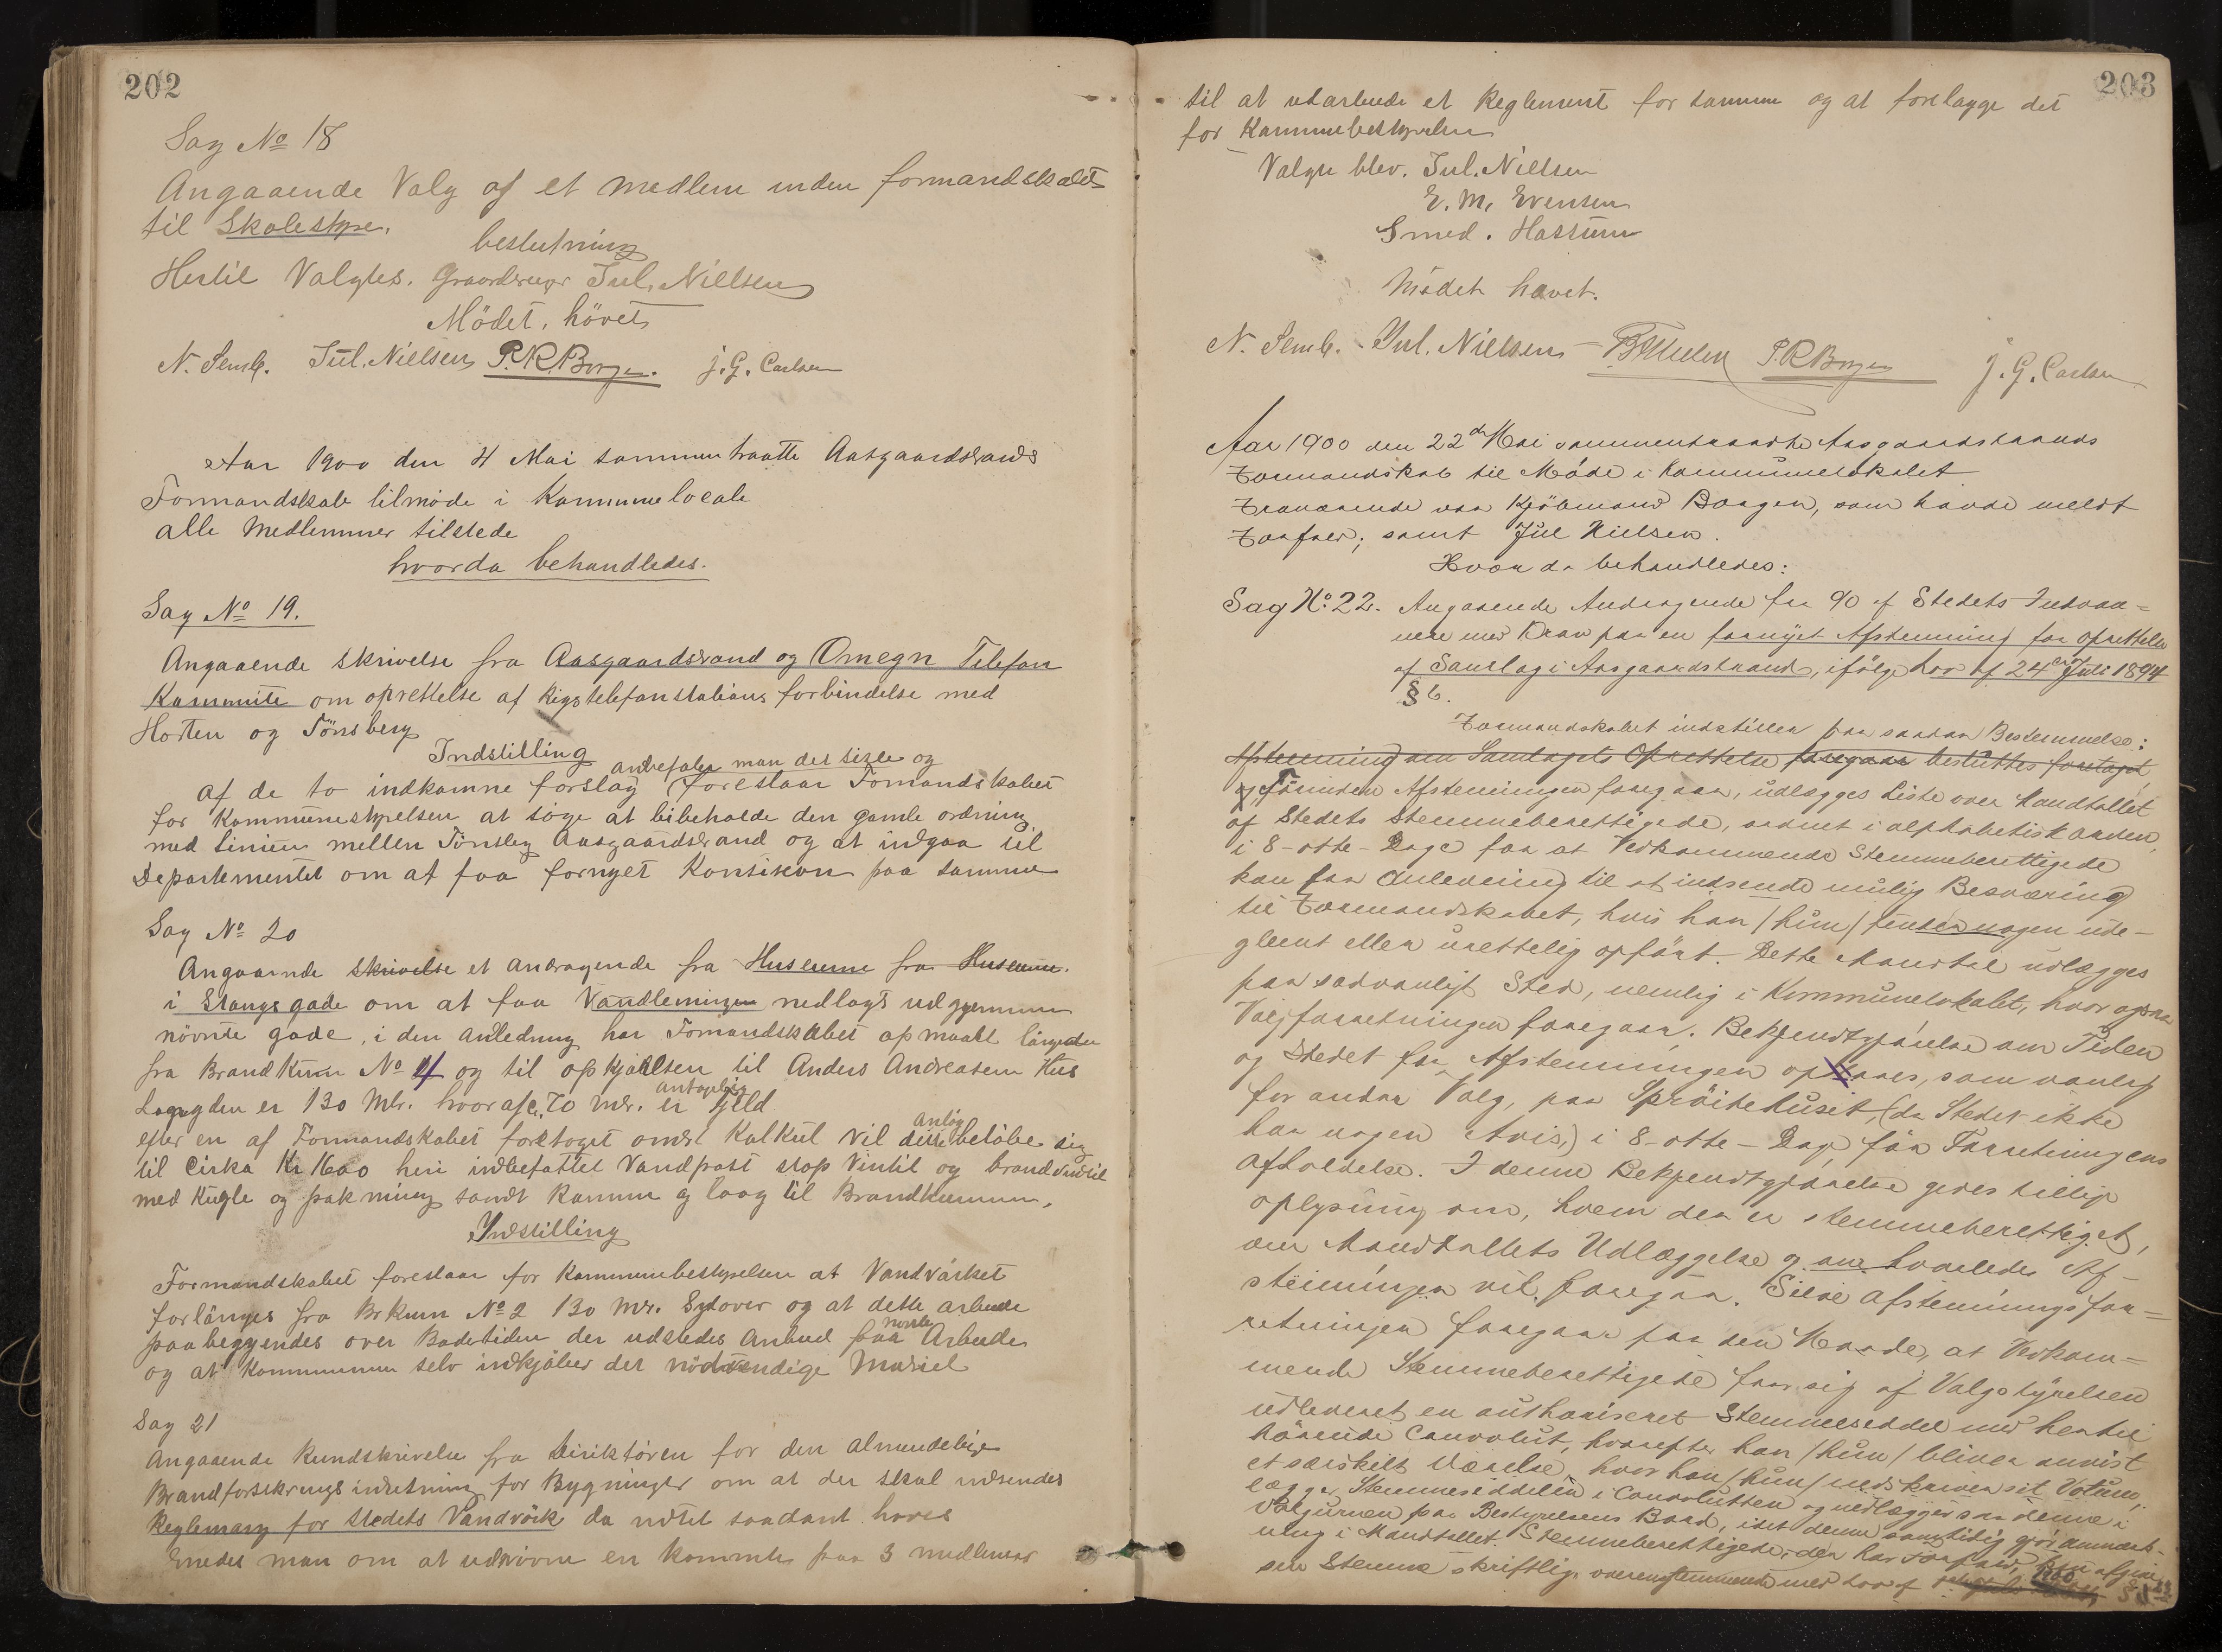 202
Sag No 18
Angaaende Valg af et medlem inden formandskabet
til Skolestyre.
beslutning
Hertil Valgtes. Gaardbruger Jul. Nielsen
Mödet, hövet
N. Semb. Jul. Nielsen P. R. Borgen. J. G. Carlsen
Aar 1900 den 4 Mai sammentraatte Aasgaardstrands
Formandskab tilmöde i Kommunelocale
alle Medlemmer tilstede
hvorda behandledes.
Sag No 19.
Angaaende skrivelse fra Aasgaardstrand og Omegn Telefon
Kommite om oprettelse af Rigstelefonstations forbindelse med
Horten og Tönsberg
Indstilling
anbefaler man det sizte og
af de to indkomne forslag forestaar Fomandskabet
for Kommunestyrelsen at söge at bibeholde den gamle ordning
med Linien mellem Tönsberg Aasgaardstrand og at indgaa til
Departementet om at faa fornyet Konsision paa samme
Sag No 20
Angaaende skrivelse et andragende fra Huseierne fra Huseierne.
i Stangsgade om at faa Vandledningen nedlagt udgjennem
növnte gade, i den anledning har Fomandskabet opmaalt längden
fra Brandkum No 4 og til opkjörselen til Anders Andreasens Hus
Lagngden er 130 Mtr. hvoraf c. 70 mtr. er antagelig fjeld
efter en af Formandskabet foretaget omtrl Kalkül vil dette anlög belöbe sig
til Cirka Kr 1600 heri indbefattet Vandpost stop Ventil og brandventil
med Kugle og pakning samt Ramme og laag til Brandkummen.
Indstilling
Formandskabet forestaar for Kommunebestyrelsen at Vandvärket
forlänges fra Brkum No 2 130 Mtr. Sydover og at dette arbeide
paabegyndes over Badetiden der udstedes Anbud paa Arbeidet
og at Kommunen selv indkjöber det nödvendige Matriel
Sag 21
Angaaende Rundskrivelse fra Diriktören for den almindelige
Brandforsikringsindretning for Bygninger om at der skal indsendes
Reglemang for stedets Vandvörk da intet saadant haves
Enedes man om at udnövne en kommite paa 3 medlemer
203
til at udarbeide et Reglement for samme og at forelægge det
for Kommunebestyrelsen
Valgte blev. Jul. Nielsen
E. M. Evensen
Smed. Hassum
Mödet havet.
N. Semb. Jul. Nielsen P. R. Borgen J. G. Carlsen
Aar 1900 den 22de Mai sammentraadte Aasgaardstrands
Formandskab til Möde i Kommunelokalet
Fraværende var Kjöbmand Borgen, som havde meldt
Forfald; samt Jul Nielsen.
Hvor da behandledes:
Sag No. 22. Angaaende Andragende fra 90 af Stedets Indvaa=
nere med Krav paa en fornyet Afstemning for Oprettelse
af Samlag i Aasgaardstrand, ifölge Lov af 24de Juli 1894
§ 6.
Formandskabet indstiller paa saadan Bestemmelse:
Afstemning om Samlagets Oprettelse foregaar besluttes foretaget
og Förinden Afstemningen foregaar, udlægges Liste over Mandtallet
af Stedets Stemmeberettigede, ordnet i alphabetisk orden,
i 8-otte-Dage for at Vedkommende Stemmeberettigede
kan faa Anledning til at indsende mulig Besværing
til Formandskabet, hvis han /hun/ finder nogen ude-
glemt eller urettelig opfört. Dette Mandtal udlægges
paa sædvanligt Sted, nemlig i Kommunelokalet, hvor ogsaa
Valgforretningen foregaar. Bekjendtgjörelse om Tiden
og Stedet for Afstemningen opslaaes, som vanlig
for andre Valg, paa Spröitehuset, (da Stedet ikke
har nogen Avis,) i 8-otte-Dage för Forretningens
Afholdelse. I denne Bekjendtgjörelse gives tillige
oplysning om, hvem der er stemmeberettiget,
om Mandtallets Udlæggelse og om hvorledes Af-
stemningen vil foregaa. Selve Afstemningsfor=
retningen foregaar paa den Maade, at Vedkom=
mende Stemmeberettigede faar sig af Valgstyrelsen
udleveret en authoriseret Stemmeseddel med hertil
hörende Convolut, hvorefter han /hun/ bliver anvist
et særskilt Værelse, hvor han /hun/ nedskriver sit Votum,
lægger Stemmeseddelen i Convolutten og nedlægger saa denne i
Valgurnen paa Bestyrelsens Bord, idet denne samtidig gjör anmærk-
ning i Mandtallet. Stemmeberettigede, der har Forfald, kan afgive
sin Stemme skriftlig overensstemmende med Lov af